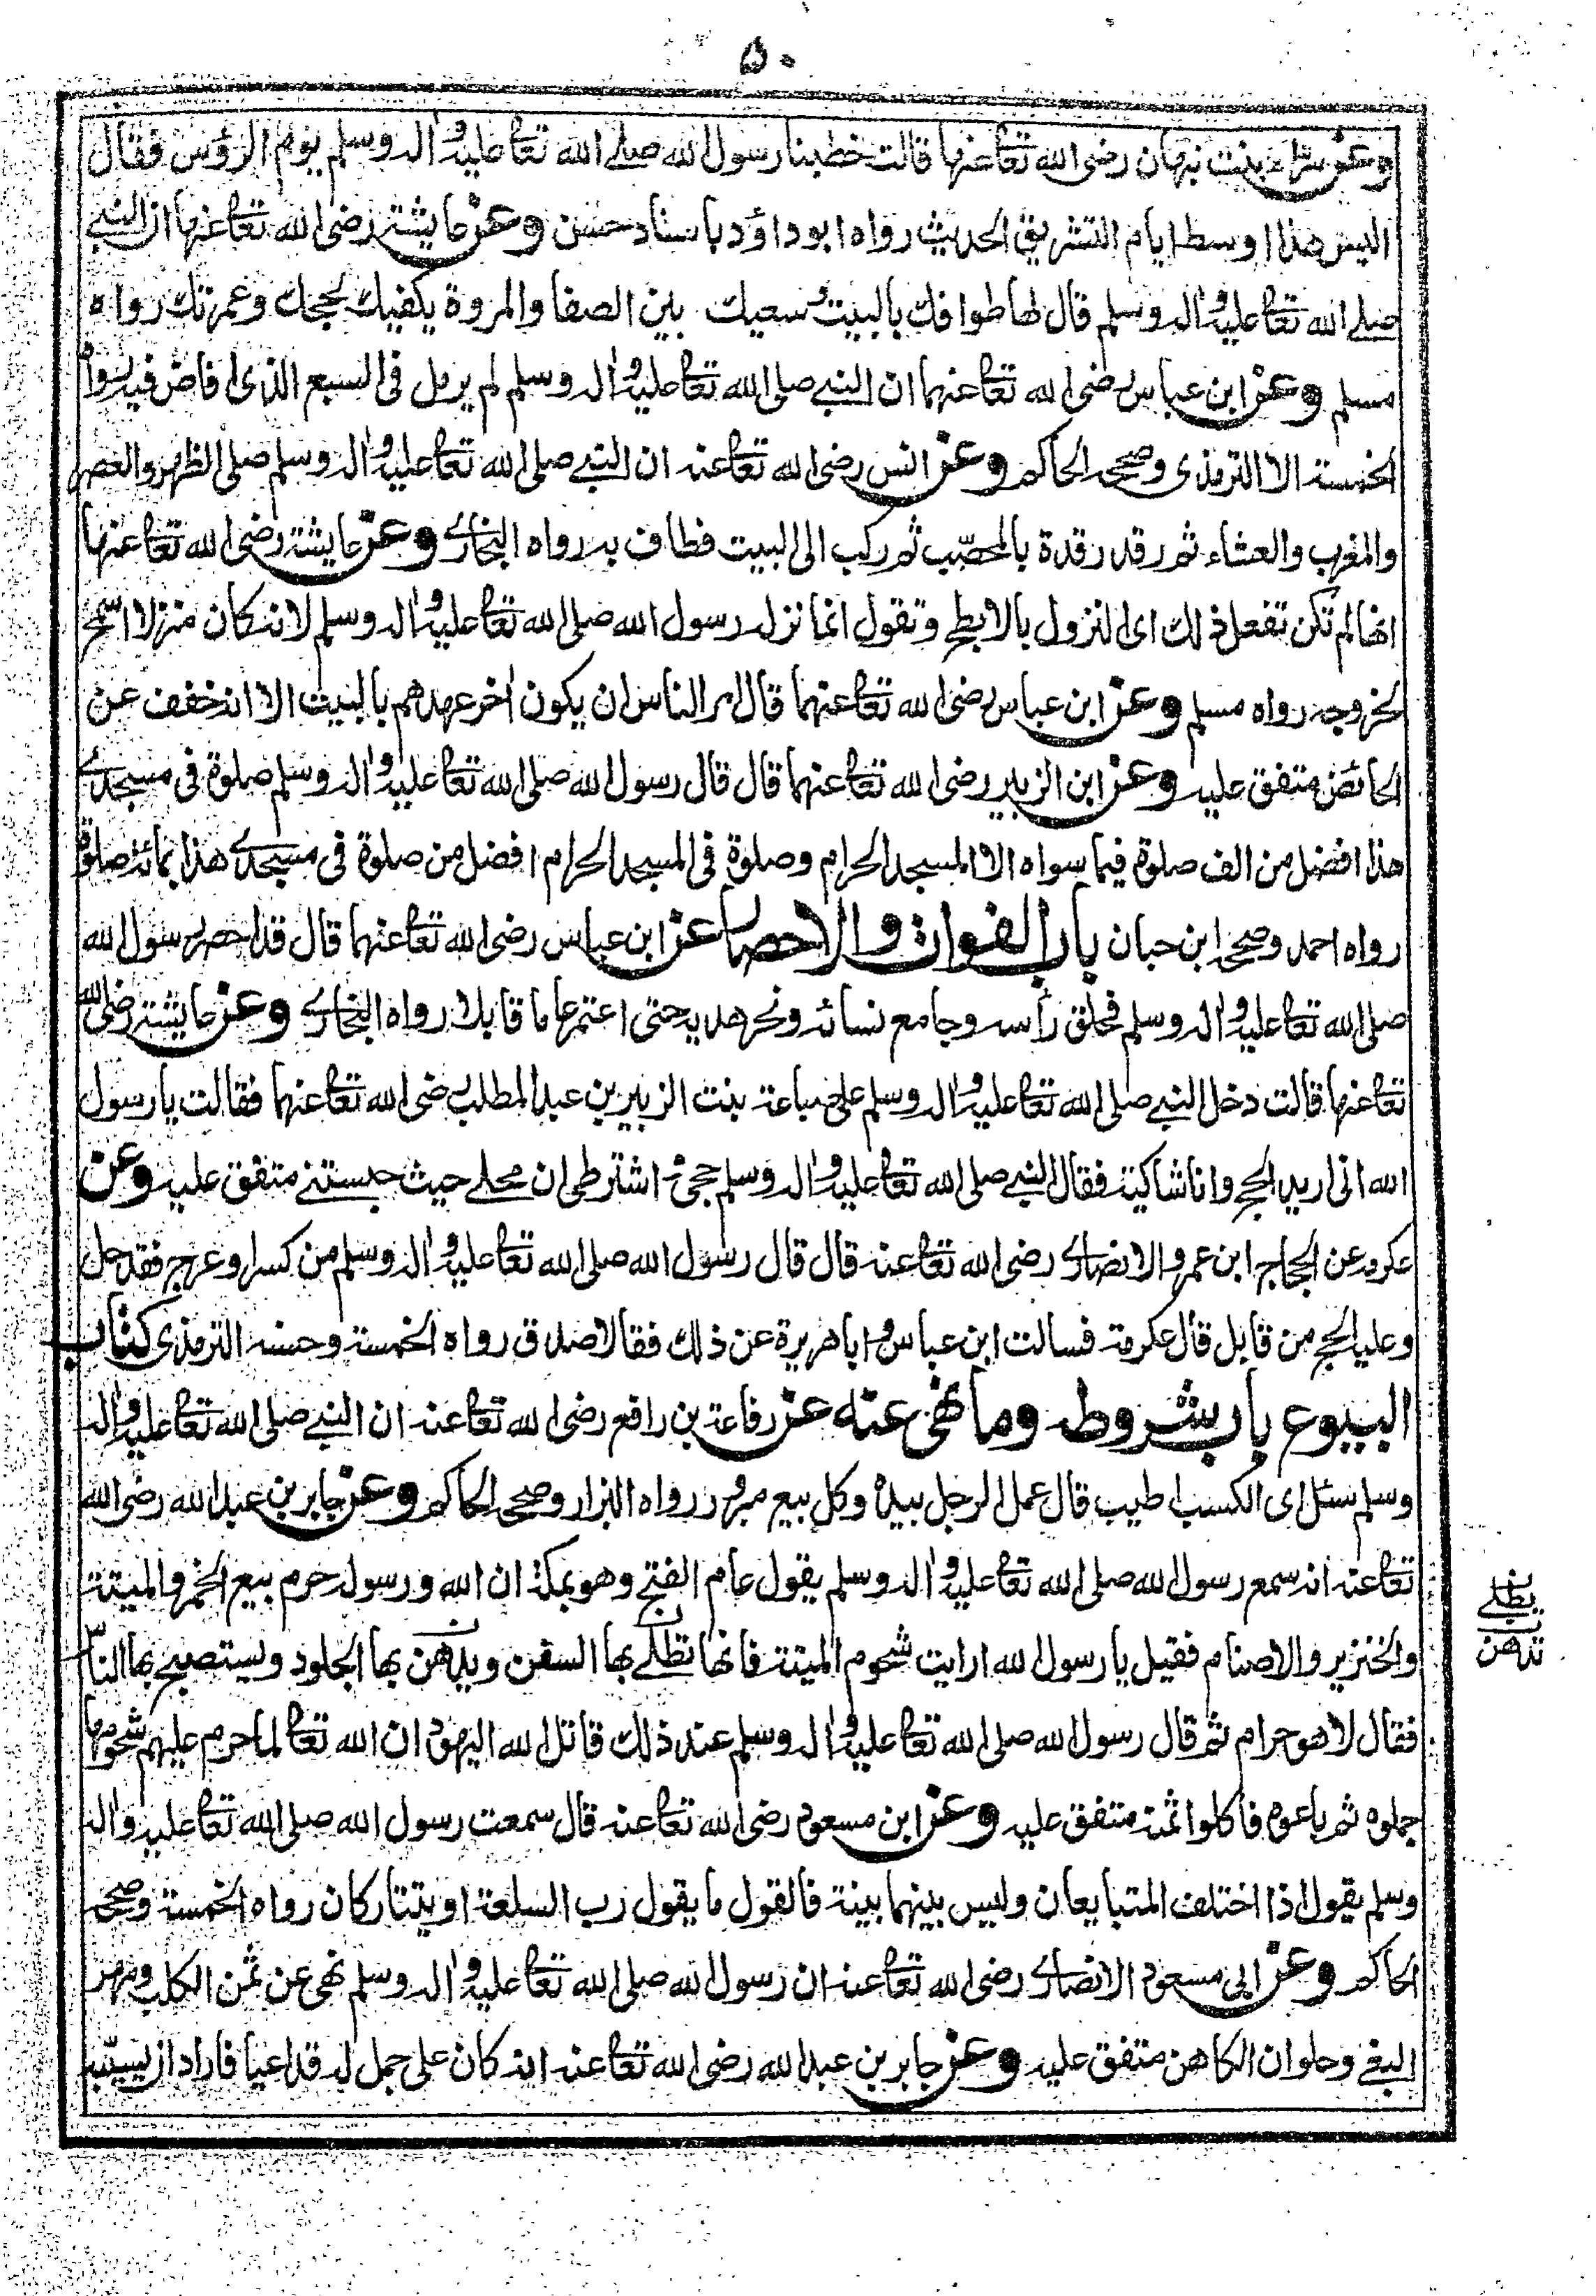 ۵۰
وعن سراء بنت نبهان رضى الله تعا عنها قالت خطبنا رسول الله صلے الله تعا عليه واله وسلم يوم الرؤس فقال
اليس هذا اوسط ايام التشريق الحديث رواه ابو داؤد باسناد حسن وعن عايشة رضى الله تعا عنها ان النبے
صلے الله تعا عليه واله وسلم قال لها طوافك بالبيت وسعيك بين الصفا والمروة يكفيك لحجك وعمرتك رواه
مسلم وعن ابن عباس رضى الله تعا عنهما ان النبے صلى الله تعا عليه واله وسلم لم يرمل فى السبع الذى افاض فيه رواه
الخمسة الا الترمذى وصححه الحاكم وعن انس رضى الله تعا عنه ان النبے صلى الله تعا عليه واله وسلم صلى الظهر والعصر
والمغرب والعشاء ثم رقد رقدة بالمحصّب ثم ركب الى البيت فطاف به رواه البخارے وعن عايشة رضى الله تعا عنها
انها لم تكن تفعل ذلك اى النزول بالابطح وتقول انما نزله رسول الله صلى الله تعا عليه واله وسلم لانه كان منزلا اسمح
لخروجه رواه مسلم وعن ابن عباس رضى الله تعا عنهما قال امر الناس ان يكون اخر عهدهم بالبيت الا انه خفف عن
الحائض متفق عليه وعن ابن الزبير رضى الله تعا عنهما قال قال رسول الله صلى الله تعا عليه واله وسلم صلوة فى مسجدے
هذا افضل من الف صلوة فيما سواه الا المسجد الحرام وصلوة فى المسجد الحرام افضل من صلوة فى مسجدے هذا بمائة صلوة
رواه احمد وصححه ابن حبان باب الفوات والاحصار عن ابن عباس رضى الله تعا عنهما قال قد احصر رسول الله
صلى الله تعا عليه واله وسلم فحلق رأسه وجامع نسائه ونحر هديه حتى اعتمر عاما قابلا رواه البخارے وعن عايشة رضى الله
تعا عنها قالت دخل النبے صلى الله تعا عليه واله وسلم على ضباعة بنت الزبير بن عبد المطلب رضى الله تعا عنهما فقالت يا رسول
الله انى اريد الحج وانا شاكية فقال النبے صلى الله تعا عليه واله وسلم حجى واشترطى ان محلے حيث حبستنے متفق عليه وعن
عكرمه عن الحجاج ابن عمرو الانصارے رضى الله تعا عنه قال قال رسول الله صلى الله تعا عليه واله وسلم من كسر او عرج فقد حل
وعليه الحج من قابل قال عكرمة فسالت ابن عباس وابا هريرة عن ذلك فقالا صدق رواه الخمسة وحسنه الترمذى كتاب
البيوع باب شروطه وما نهى عنه عن رفاعة بن رافع رضى الله تعا عنه ان النبے صلى الله تعا عليه واله
وسلم سئل اى الكسب اطيب قال عمل الرجل بيده وكل بيع مبرور رواه البزار وصححه الحاكم وعن جابر بن عبد الله رضى الله
تعا عنه انه سمع رسول الله صلى الله تعا عليه واله وسلم يقول عام الفتح وهو بمكة ان الله ورسوله حرم بيع الخمر والميتة
والخنزير والاصنام فقيل يا رسول الله ارايت شحوم الميتة فانها تطلے بها السفن ويدهن بها الجلود ويستصبح بها الناس
فقال لا هو حرام ثم قال رسول الله صلى الله تعا عليه واله وسلم عند ذلك قاتل الله اليهود ان الله تعا لما حرم عليهم شحومها
جملوه ثم باعوه فاكلوا ثمنه متفق عليه وعن ابن مسعود رضى الله تعا عنه قال سمعت رسول الله صلى الله تعا عليه واله
وسلم يقول اذا اختلف المتبايعان وليس بينهما بينة فالقول ما يقول رب السلعة او يتتاركان رواه الخمسة وصححه
الحاكم وعن ابى مسعود الانصارے رضى الله تعا عنه ان رسول الله صلى الله تعا عليه واله وسلم نهى عن ثمن الكلب ومهر
البغے وحلوان الكاهن متفق عليه وعن جابر بن عبد الله رضى الله تعا عنه انه كان على جمل له قد اعيا فاراد ان يسيّبه
يطلے
تدهن